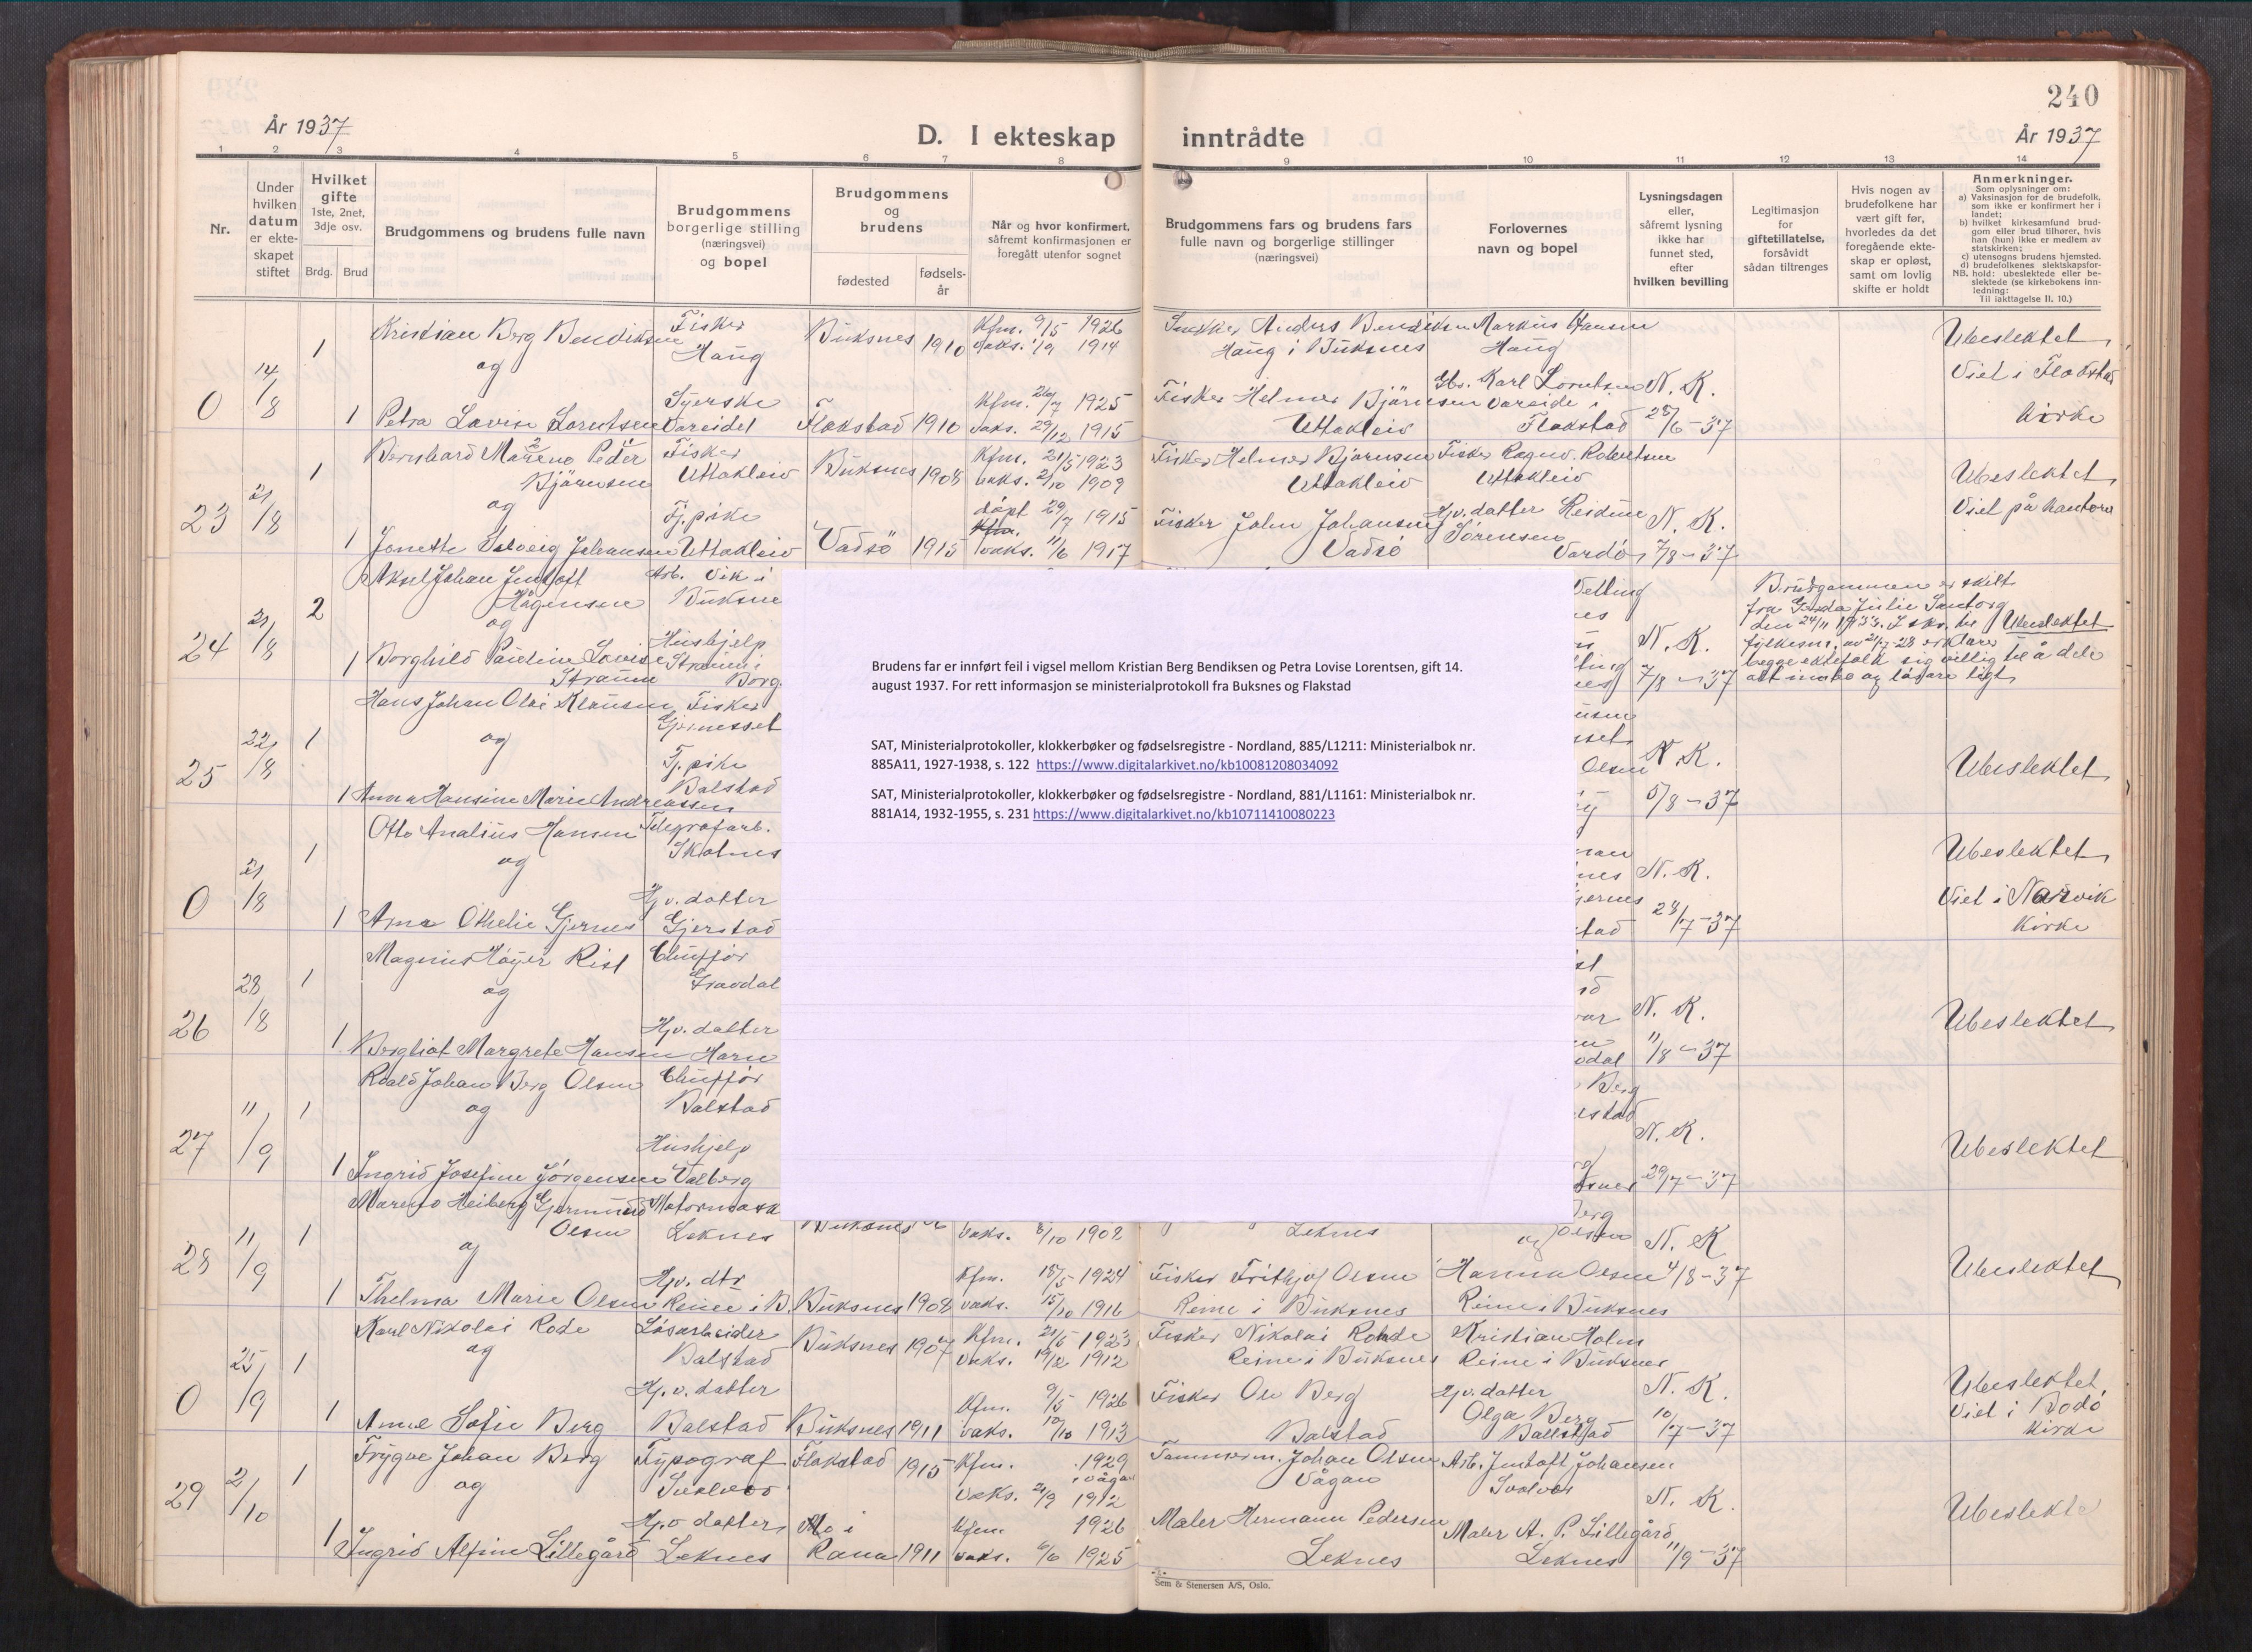 240
År 1937
D. I ekteskap inntrådte
År 1937
1 2 3 4 5 6 7 8 9 10 11 12 13 14
Nr.
Under
hvilken
datum
er ekte-
skapet
stiftet
Hvilket
gifte
1ste, 2net,
3dje osv.
Brdg. Brud
Brudgommens og brudens fulle navn
Brudgommens
borgerlige stilling
(næringsvei)
og bopel
Brudgommens
og
brudens
fødested
fødsels-
år
Når og hvor konfirmert,
såfremt konfirmasjonen er
foregått utenfor sognet
Brudgommens fars og brudens fars
fulle navn og borgerlige stillinger
(næringsvei)
Forlovernes
navn og bopel
Lysningsdagen
eller,
såfremt lysning
ikke har
funnet sted,
efter
hvilken bevilling
Legitimasjon
for
giftetillatelse,
forsåvidt
sådan tiltrenges
Hvis nogen av
brudefolkene har
vært gift før,
hvorledes da det
foregående ekte-
skap er opløst,
samt om lovlig
skifte er holdt
Anmerkninger.
Som oplysninger om:
a) Vaksinasjon for de brudefolk,
som ikke er konfirmert her i
landet;
b) hvilket kirkesamfund brud-
gom eller brud tilhører, hvis
han (hun) ikke er medlem av
statskirken;
c) utensogns brudens hjemsted.
d) brudefolkenes slektskapsfor-
NB. hold: ubeslektede eller be-
slektede (se kirkebokens inn-
ledning:
Til iakttagelse II. 10.)
0 14/8 1 Kristian Berg Bendiksen Fisker Buksnes 1910 Kfm. 9/5 1926 Snekker Anders Bendiksen Markus Hansen Ubeslektet
og Haug vaks. 1/9 1914 Haug i Buksnes Haug Viet i Flakstad
Syerske Kfm. 26/7 1925 Fisker Helmer Bjørnsen Gbr. Karl Lorntsen N. K. kirke
1 Petra Lovise Lorentsen Vareidet Flakstad 1910 vaks. 29/12 1915 Uttakleiv Vareide i Flakstad 28/6-37
23 21/8 1 Bernhard Mareno Peder Fisker Buksnes 1908 Kfm. 21/5 1923 Fisker Helmer Bjørnsen Fisker Ragnv. Robertsen Ubeslektet
Bjørnsen Uttakleiv vaks. 2/10 1909 Uttakleiv Uttakleiv Viet på kontoret
og Tj. pike døpt 29/7 1915 Fisker John Johansen Hjv. datter Reidun N. K.
1 Jonette Solveig Johansen Uttakleiv Vadsø 1915 vaks. 11/6 1917 Vadsø Sørensen Vardø 7/8-37
24 21/8 2 Aksel Johan Jentoft Arb. Vik i
Hågensen Buksne
og Hushjelp N. K.
1 Borghild Pauline Lovise Straum i
Straum Borg. 7/8-37
Brudgommen er skilt
fra Gerda Julie Santorg
den 24/11 1933. I skr. til
fylkesm. av 21/7-28 erklærer
begge ektefolk sig villig til å dele
alt innbo og løsøre likt
Ubeslektet
25 22/8 1 Hans Johan Olai Klausen Fisker
og Gjernesset N. K.
Tj. pike Olsen Ubeslektet
1 Anna Hansine Marie Andreassen Balstad 5/8-37
0 21/8 1 Otto Analius Hansen Telegrafarb. Ubeslektet
og Skotnes N. K.
Hjv. datter Viet i Narvik
1 Anna Othelie Gjernes Gjerstad 28/7-37 kirke
26 28/8 1 Magnus Høyer Rist Chuffør
og Gravdal N. K.
Hjv. datter Ubeslektet
1 Bergliot Margrete Hansen Horn 11/8-37
27 11/9 1 Roald Johan Berg Olsen Chuffør Berg
og Balstad N. K.
Hushjelp Ubeslektet
1 Ingrid Josefine Jørgensen Valberg 29/7-37
28 11/9 1 Mareno Heiberg Gjermund Motormask
Olsen Leknes Buksnes vaks. 8/10 1908 Leknes Olsen N. K
og Hjv. dtr Kfm. 18/5 1924 Fisker Frithjof Olsen Hanna Olsen 4/8-37 Ubeslektet
1 Thelma Marie Olsen Reine i B. Buksnes 1908 vaks. 15/10 1916 Reine i Buksnes Reine i Buksnes
0 25/9 1 Karl Nikolai Rode Løsarbeider Buksnes 1907 Kfm. 21/5 1923 Fisker Nikolai Rohde Kristian Holm
og Balstad vaks. 19/12 1912 Reine i Buksnes Reine i Buksnes
Hj.v. datter Kfm. 9/5 1926 Fisker Ole Berg Hjv. datter N. K. Ubeslektet
1 Anne Sofie Berg Balstad Buksnes 1911 vaks. 10/10 1913 Balstad Olga Berg Ballstad 10/7-37 Viet i Bodø kirke
29 2/10 1 Trygve Johan Berg Typograf Flakstad 1915 Kfm. 1929 i Vågan Tømmerm. Johan Olsen Arb. Jentoft Johansen
og Svolvær vaks. 21/9 1912 Vågan Svolvær N. K.
Hj.v datter Mo i Kfm 1926 Maler Hermann Pedersen Maler A. P. Lillegård Ubeslekte
1 Ingrid Alfine Lillegård Leknes Rana 1911 vaks. 6/6 1925 Leknes Leknes 11/9-37
Brudens far er innført feil i vigsel mellom Kristian Berg Bendiksen og Petra Lovise Lorentsen, gift 14.
august 1937. For rett informasjon se ministerialprotokoll fra Buksnes og Flakstad
SAT, Ministerialprotokoller, klokkerbøker og fødselsregistre - Nordland, 885/L1211: Ministerialbok nr.
885A11, 1927-1938, s. 122 https://www.digitalarkivet.no/kb10081208034092
SAT, Ministerialprotokoller, klokkerbøker og fødselsregistre - Nordland, 881/L1161: Ministerialbok nr.
881A14, 1932-1955, s. 231 https://www.digitalarkivet.no/kb10711410080223
Sem & Stenersen A/S, Oslo.